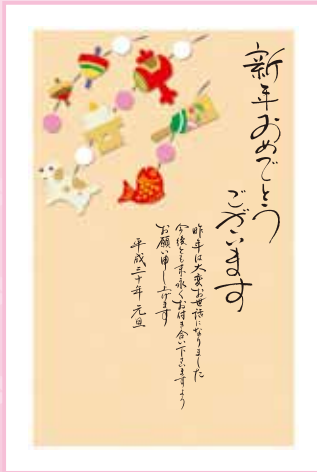 新年おめでとう
ございます
昨年は大変お世話になりました
今後とも末永くお付き合い下さいますよう
お願い申し上げます
平成三十年 元旦